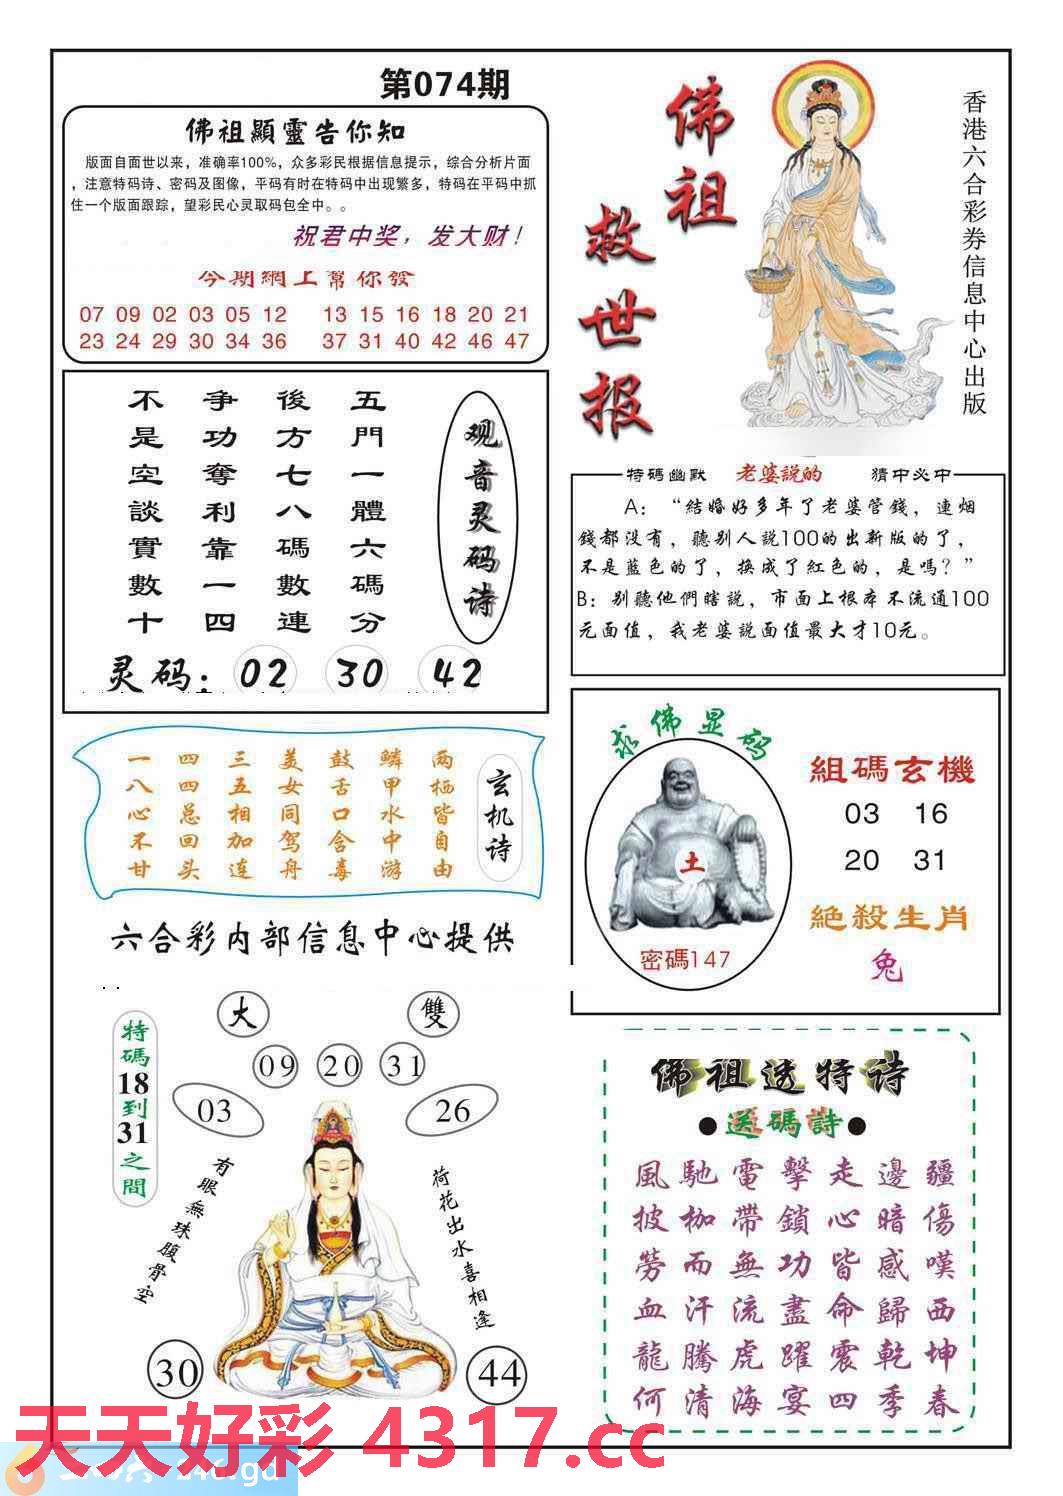 第074期
佛祖顯靈告你知
版面自面世以来，准确率100%，众多彩民根据信息提示，综合分析片面
，注意特码诗、密码及图像，平码有时在特码中出现繁多，特码在平码中抓
住一个版面跟踪，望彩民心灵取码包全中。。
祝君中奖，发大财！
今期網上幫你發
07 09 02 03 05 12 13 15 16 18 20 21
23 24 29 30 34 36 37 31 40 42 46 47
佛祖
救世报
香港六合彩券信息中心出版
观音灵码诗
五門一體六碼分
後方七八碼數連
爭功奪利靠一四
不是空談實數十
灵码：02 30 42
特碼幽默 老婆説的 猜中必中
A：“結婚好多年了老婆管錢，連烟
錢都没有，聽别人説100的出新版的了，
不是藍色的了，换成了紅色的，是嗎？”
B：别聽他們瞎説，市面上根本不流通100
元面值，我老婆説面值最大才10元。
玄机诗
两栖皆自由
鳞甲水中游
鼓舌口含毒
美女同驾舟
三五相加连
四四总回头
一八心不甘
求佛显码
土
密碼147
組碼玄機
03 16
20 31
絶殺生肖
兔
六合彩内部信息中心提供
大 雙
09 20 31
03 26
特碼18到31之間
有眼無珠腹骨空
荷花出水喜相逢
30 44
佛祖透特诗
●送碼詩●
風馳電擊走邊疆
披枷帶鎖心暗傷
勞而無功皆感嘆
血汗流盡命歸西
龍騰虎躍震乾坤
何清海宴四季春
天天好彩 4317.cc
246.gd